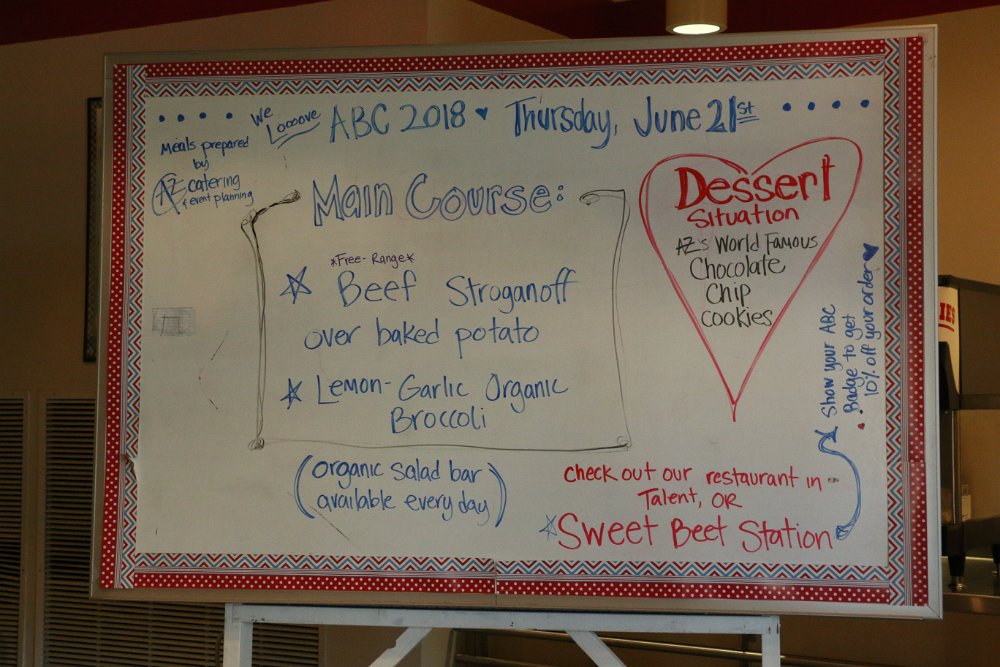 We Looove ABC 2018 Thursday, June 21st
Meals prepared
by
AZ catering
& event planning
Main Course:
*Free-Range*
Beef Stroganoff
over baked potato
Lemon-Garlic Organic
Broccoli
(organic salad bar
available every day)
Dessert
Situation
AZ's World Famous
Chocolate
Chip
cookies
Show your ABC
Badge to get
10% off your order
check out our restaurant in
Talent, OR
Sweet Beet Station